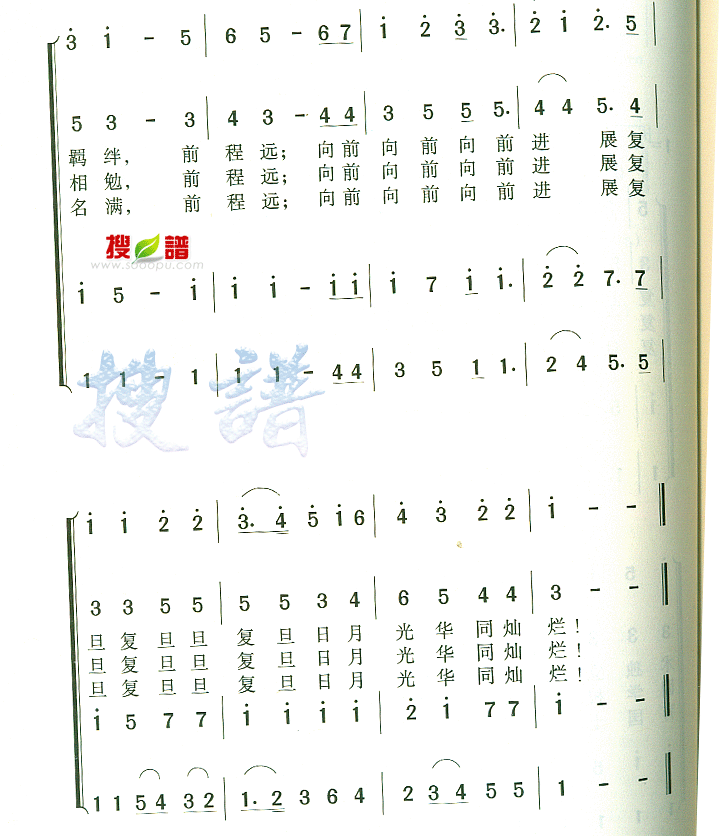 3 i - 5 | 6 5 - 6 7 | i 2 3 3. | 2 i 2. 5 |
5 3 - 3 | 4 3 - 4 4 | 3 5 5 5. | 4 4 5. 4 |
羁绊, 前程远; 向前向前向前进 展复
相勉, 前程远; 向前向前向前进 展复
名满, 前程远; 向前向前向前进 展复
搜谱
www.sooopu.com
i 5 - i | i i - i i | i 7 i i. | 2 2 7. 7 |
1 1 - 1 | 1 1 - 4 4 | 3 5 1 1. | 2 4 5. 5 |
搜谱
i i 2 2 | 3. 4 5 i 6 | 4 3 2 2 | i - - ||
3 3 5 5 | 5 5 3 4 | 6 5 4 4 | 3 - - ||
旦复旦旦 复旦日月 光华同灿烂!
旦复旦旦 复旦日月 光华同灿烂!
旦复旦旦 复旦日月 光华同灿烂!
i 5 7 7 | i i i i | 2 i 7 7 | i - - ||
1 1 5 4 3 2 | 1. 2 3 6 4 | 2 3 4 5 5 | 1 - - ||